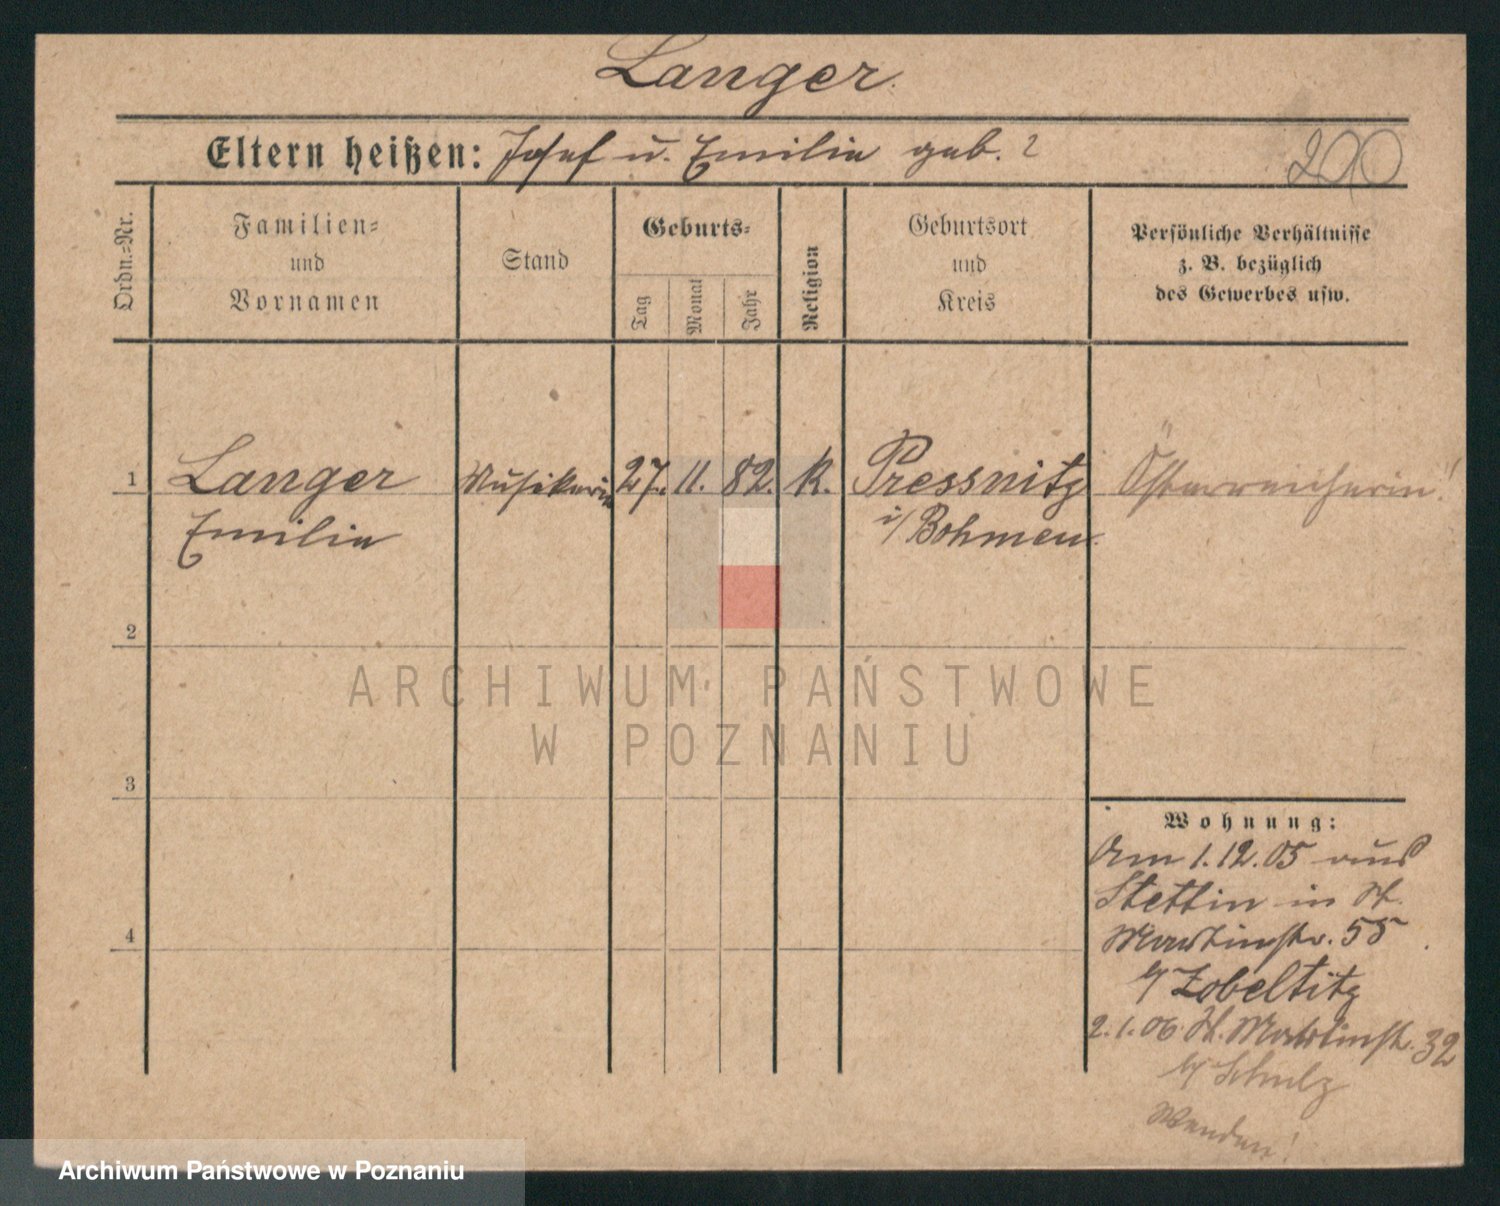 Langer.
Eltern heißen: Josef u. Emilie geb. ?
200
Ordn.=Nr.
Familien=
und
Vornamen
Stand
Geburts=
Tag
Monat
Jahr
Religion
Geburtsort
und
Kreis
Persönliche Verhältnisse
z. B. bezüglich
des Gewerbes usw.
1 Langer Musikerin 27. 11. 82. K. Pressnitz Österreicherin!
Emilie i/Böhmen.
2
ARCHIWUM PAŃSTWOWE
W POZNANIU
3
Wohnung:
Am 1.12.05 aus
Stettin in St.
Martinstr. 55
b/ Zobeltitz
4
2.1.06. St. Martinstr. 32
b/ Schulz
Wenden!
Archiwum Państwowe w Poznaniu